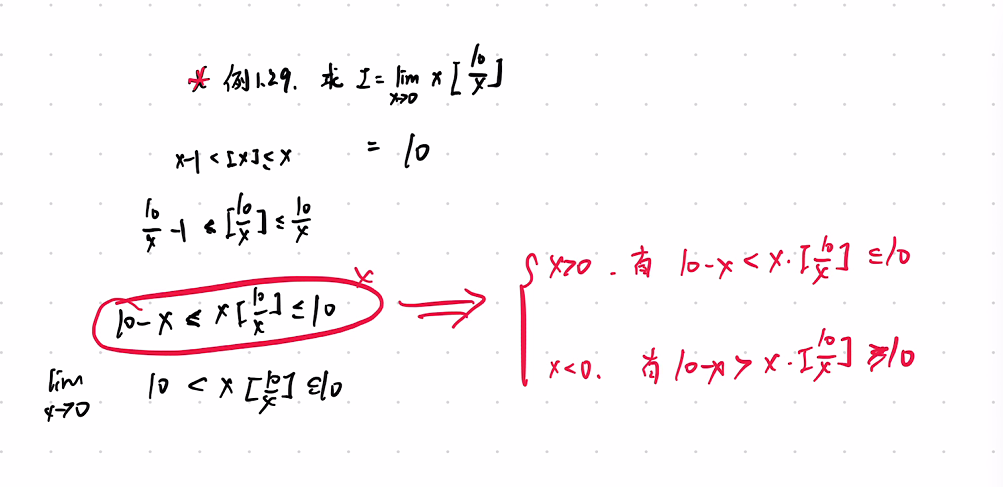 * 例1.29. 求 I = lim x→0 x [10/x]
x-1 < [x] ≤ x = 10
10/x - 1 < [10/x] ≤ 10/x
10-x < x[10/x] ≤ 10 x ⟹ { x>0. 有 10-x < x·[10/x] ≤ 10
x<0. 有 10-x > x·[10/x] ≥ 10
lim x→0 10 < x[10/x] ≤ 10